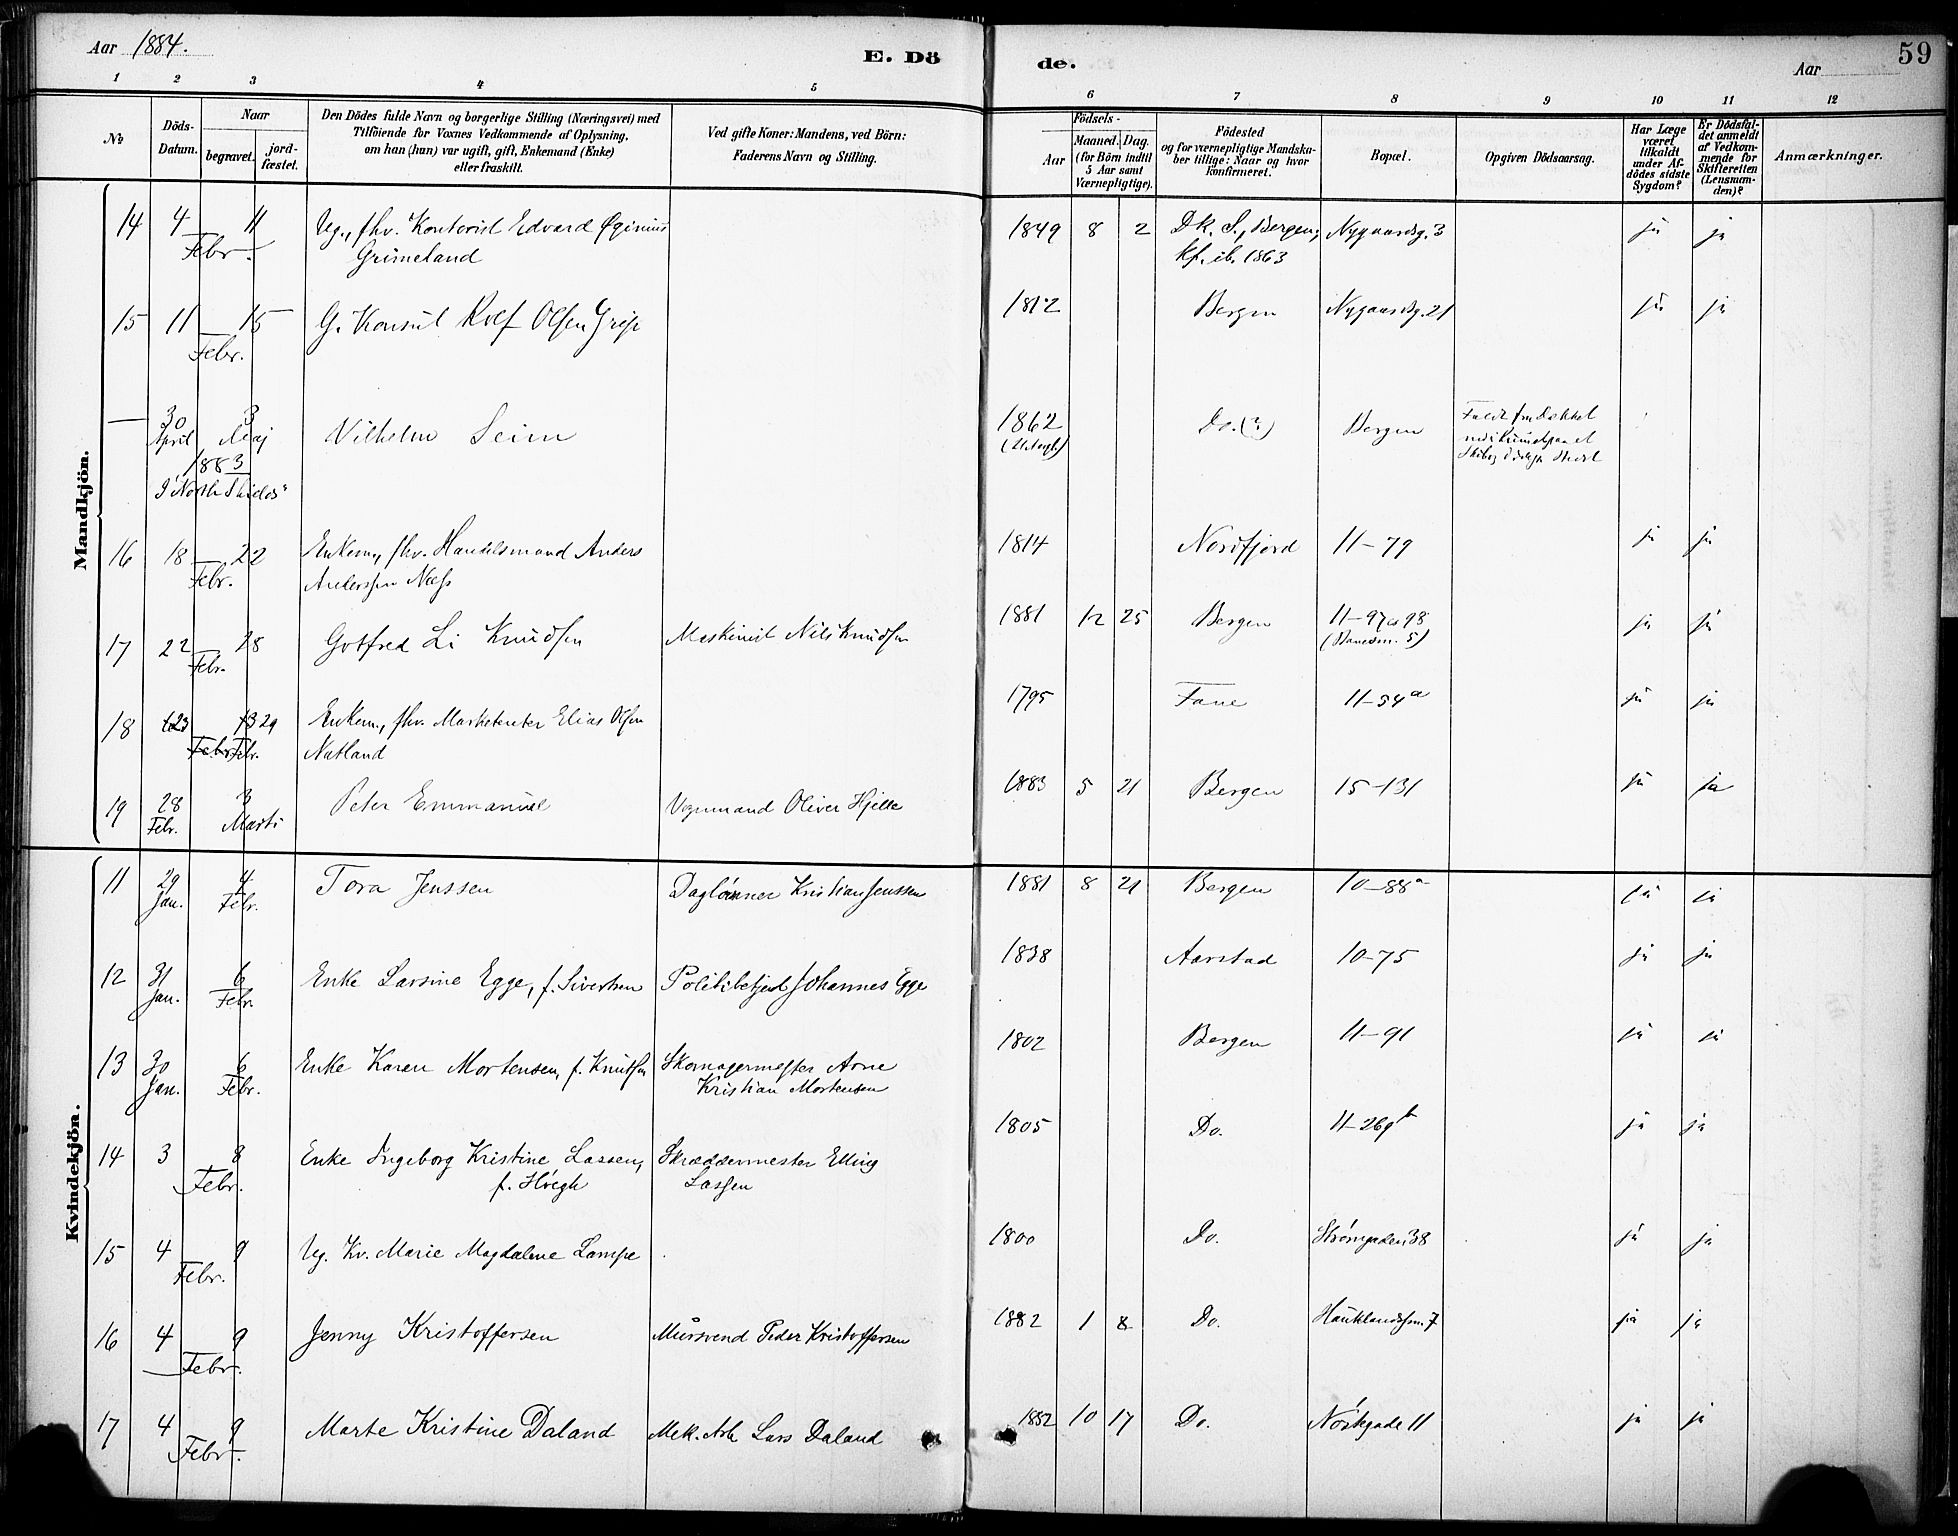 Aar 1884.
E. Dö
de.
Aar
59
1 2 3 4 5 6 7 8 9 10 11 12
№
Döds-
Datum.
Naar
begravet.
jord-
fæstet.
Den Dödes fulde Navn og borgerlige Stilling (Næringsvei) med
Tilföiende for Voxnes Vedkommende af Oplysning,
om han (hun) var ugift, gift, Enkemand (Enke)
eller fraskilt.
Ved gifte Koner: Mandens, ved Börn:
Faderens Navn og Stilling.
Födsels-
Aar
Maaned.
Dag.
(for Börn indtil
5 Aar samt
Værnepligtige).
Födested
og for værnepligtige Mandska-
ber tillige: Naar og hvor
konfirmeret.
Bopæl.
Opgiven Dödsaarsag.
Har Læge
været
tilkaldt
under Af-
dödes sidste
Sygdom?
Er Dödsfal-
det anmeldt
af Vedkom-
mende for
Skifteretten
(Lensman-
den)?
Anmærkninger.
Mandkjön.
14 4 11 Ug., fhv. Kontorist Edvard 1849 8 2 Dk. S., Bergen; Nygaardsg. 3 ja ja
Febr. Grimeland kf. ib. 1863
15 11 15 G. Konsul Rolf Olsen Grip 1812 Bergen Nygaardsg. 21 ja ja
Febr.
— 30 3 Vilhelm Seim 1862 Do. (?) Bergen Faldt fra Dækket
April Maj
1883
I "North Shields"
16 18 22 Enkem., fhv. Handelsmand Anders 1814 Nordfjord 11-79 ja ja
Febr. Anderssen Næss
17 22 28 Gotfred Li Knudsen Maskinist Nils Knudsen 1881 12 25 Bergen 11-97 98 ja ja
Febr.
18 23 29 Enkem., fhv. Marketenter Elias Olsen 1795 Fane 11-54a ja ja
Febr. Febr. Natland
19 28 3 Peter Emmanuel Vognmand Oliver Hjelle 1883 5 21 Bergen 15-131 ja ja
Febr. Marts
Kvindekjön.
11 29 4 Tora Jenssen Daglönner Kristian Jenssen 1881 8 21 Bergen 10-88a ja ja
Jan. Febr.
12 31 6 Enke Larsine Egge, f. Sivertsen Politibetjent Johannes Egge 1838 Aarstad 10-75 ja ja
Jan. Febr.
13 30 6 Enke Karen Mortensen, f. Knutsen Skomagermester Arne 1802 Bergen 11-91 ja ja
Jan. Febr. Kristian Mortensen
14 3 8 Enke Ingeborg Kristine Lassen, Skræddermester Elling 1805 Do. 11-269b ja ja
Febr. f. Høegh Lassen
15 4 9 Ug. Kv. Marie Magdalene Lampe 1800 Do. Strømgaden 38 ja ja
Febr.
16 4 9 Jenny Kristoffersen Mursvend Peder Kristoffersen 1882 1 8 Do. Hauklandssm. 7 ja ja
Febr.
17 4 9 Marte Kristine Daland Mek. Arb. Lars Daland 1882 10 17 Do. Nöstegade 11 ja ja
Febr.